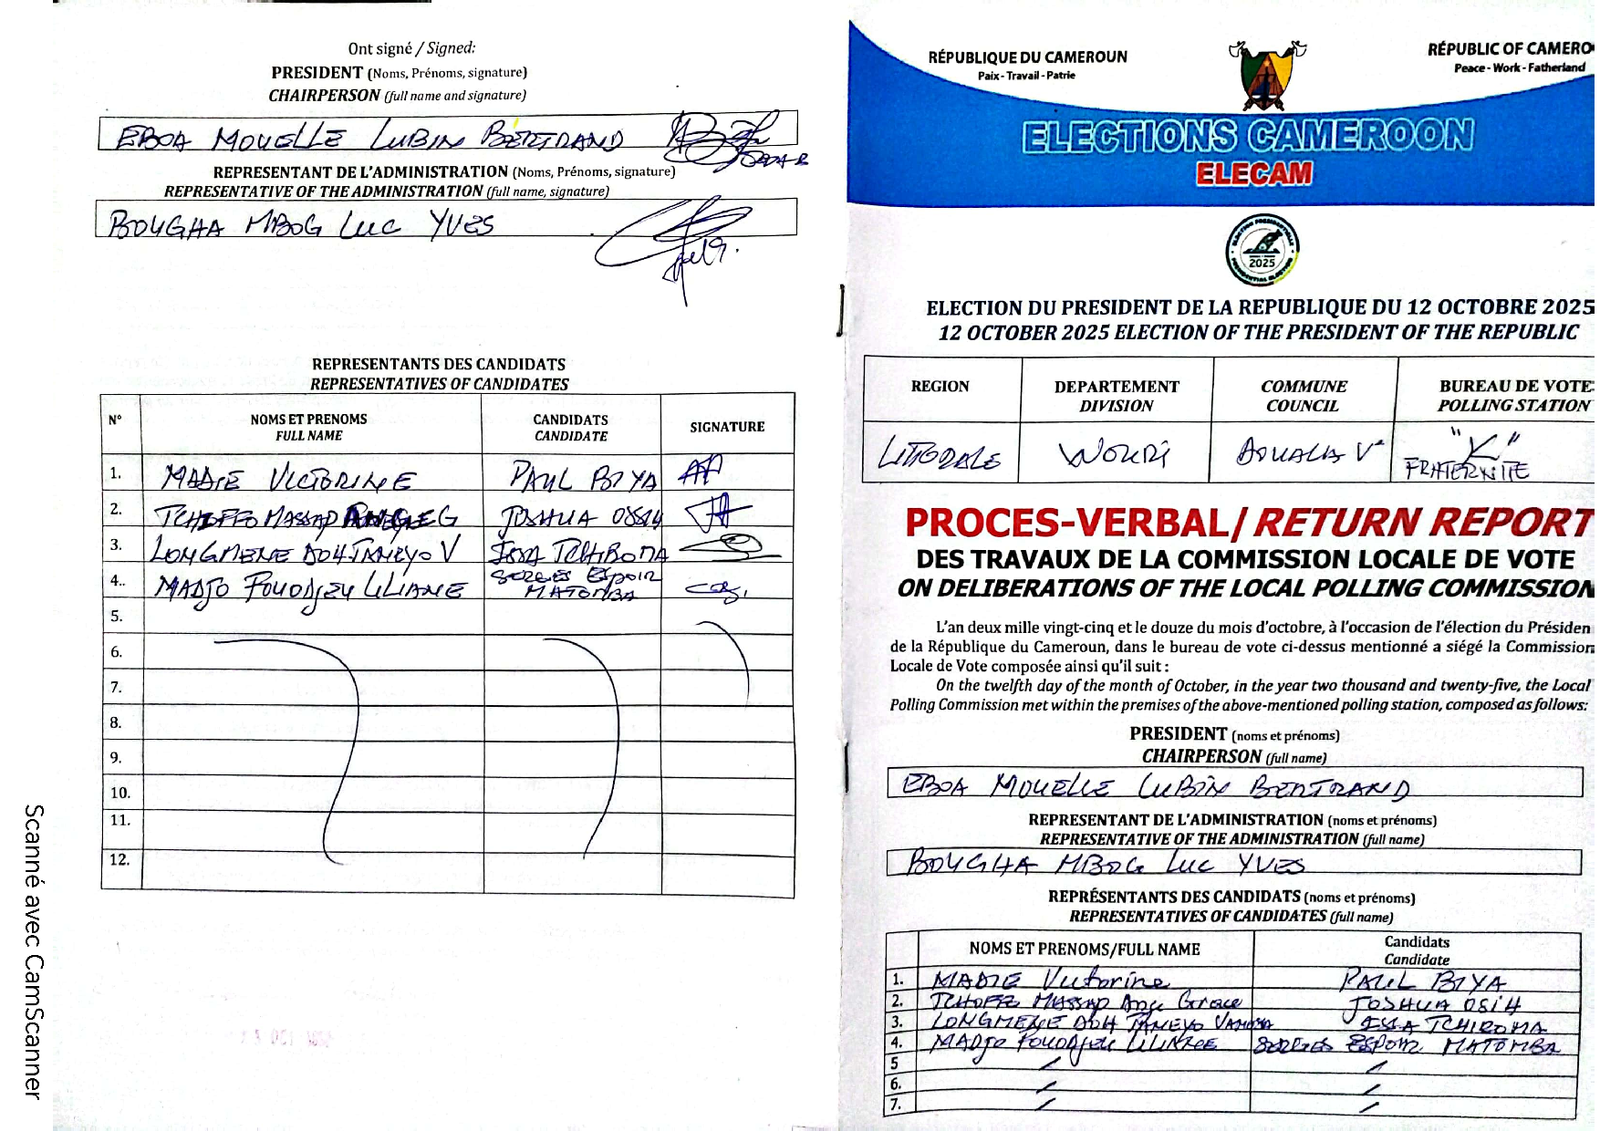 Ont signé / Signed:
PRESIDENT (Noms, Prénoms, signature)
CHAIRPERSON (full name and signature)
EBOA MOUELLE LUBIN BERTRAND
REPRESENTANT DE L'ADMINISTRATION (Noms, Prénoms, signature)
REPRESENTATIVE OF THE ADMINISTRATION (full name, signature)
BOUGHA MBOG LUC YVES
REPRESENTANTS DES CANDIDATS
REPRESENTATIVES OF CANDIDATES
N° NOMS ET PRENOMS CANDIDATS SIGNATURE
FULL NAME CANDIDATE
1. MADIE VICTORINE PAUL BIYA
2. TCHOFFO MASSAP JOSHUA OSIH
3. LONGMENE V ISSA TCHIROMA
4.. MADJO FOUODJEU LILIANE SERGES ESPOIR MATOMBA
5.
6.
7.
8.
9.
10.
11.
12.
Scanné avec CamScanner
RÉPUBLIQUE DU CAMEROUN
Paix - Travail - Patrie
RÉPUBLIC OF CAMERO
Peace - Work - Fatherland
ELECTIONS CAMEROON
ELECAM
ELECTION PRESIDENTIELLE
2025
PRESIDENTIAL ELECTION
ELECTION DU PRESIDENT DE LA REPUBLIQUE DU 12 OCTOBRE 2025
12 OCTOBER 2025 ELECTION OF THE PRESIDENT OF THE REPUBLIC
REGION DEPARTEMENT COMMUNE BUREAU DE VOTE
DIVISION COUNCIL POLLING STATION
LITTORALE WOURI DOUALA Ve "K" FRATERNITE
PROCES-VERBAL/RETURN REPORT
DES TRAVAUX DE LA COMMISSION LOCALE DE VOTE
ON DELIBERATIONS OF THE LOCAL POLLING COMMISSION
L'an deux mille vingt-cinq et le douze du mois d'octobre, à l'occasion de l'élection du Présiden
de la République du Cameroun, dans le bureau de vote ci-dessus mentionné a siégé la Commission
Locale de Vote composée ainsi qu'il suit :
On the twelfth day of the month of October, in the year two thousand and twenty-five, the Local
Polling Commission met within the premises of the above-mentioned polling station, composed as follows:
PRESIDENT (noms et prénoms)
CHAIRPERSON (full name)
EBOA MOUELLE LUBIN BERTRAND
REPRESENTANT DE L'ADMINISTRATION (noms et prénoms)
REPRESENTATIVE OF THE ADMINISTRATION (full name)
BOUGHA MBOG LUC YVES
REPRÉSENTANTS DES CANDIDATS (noms et prénoms)
REPRESENTATIVES OF CANDIDATES (full name)
NOMS ET PRENOMS/FULL NAME Candidats
Candidate
1. MADIE Victorine PAUL BIYA
2. MASSAP Grace JOSHUA OSIH
3. LONGMENE ISSA TCHIROMA
4. MADJO FOUODJEU LILIANE SERGES ESPOIR MATOMBA
5
6.
7.